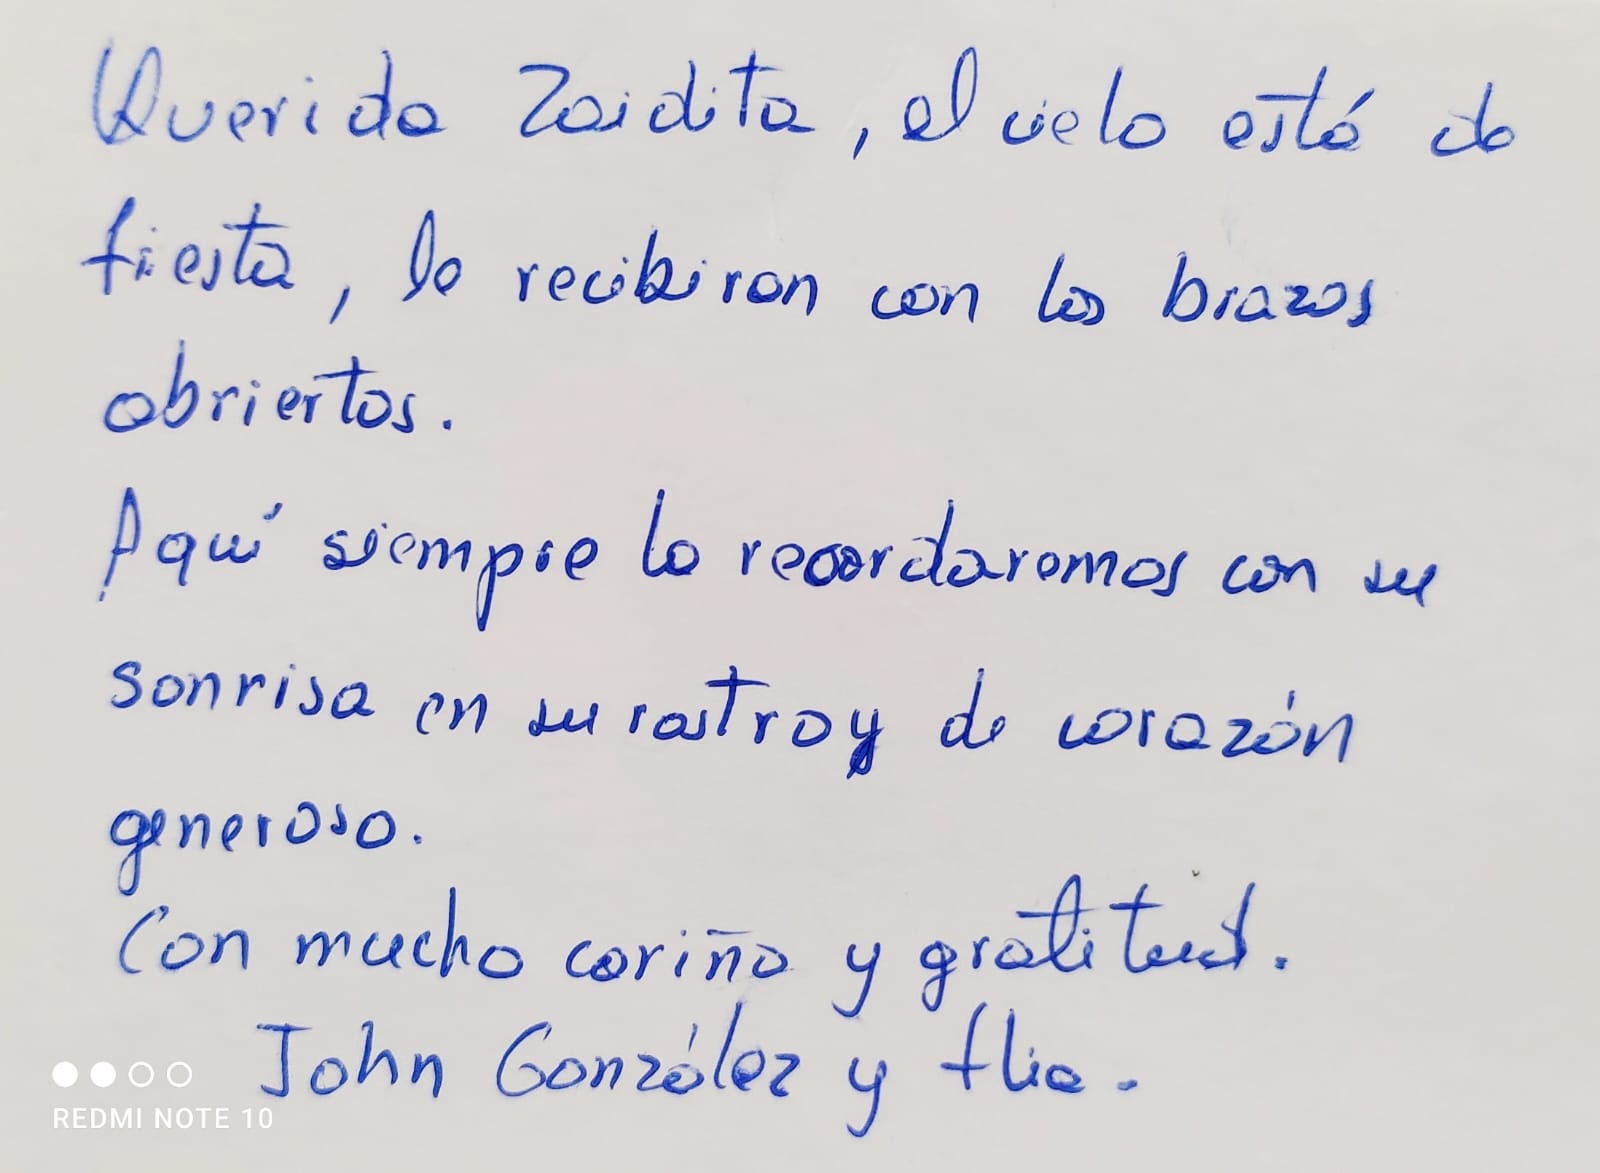 Querida Zaidita, el cielo está de
fiesta, la recibiran con los brazos
abriertos.
Aquí siempre la recordaremos con su
sonrisa en su rostro y de corazón
generoso.
Con mucho cariño y gratitud.
John González y flia.
REDMI NOTE 10